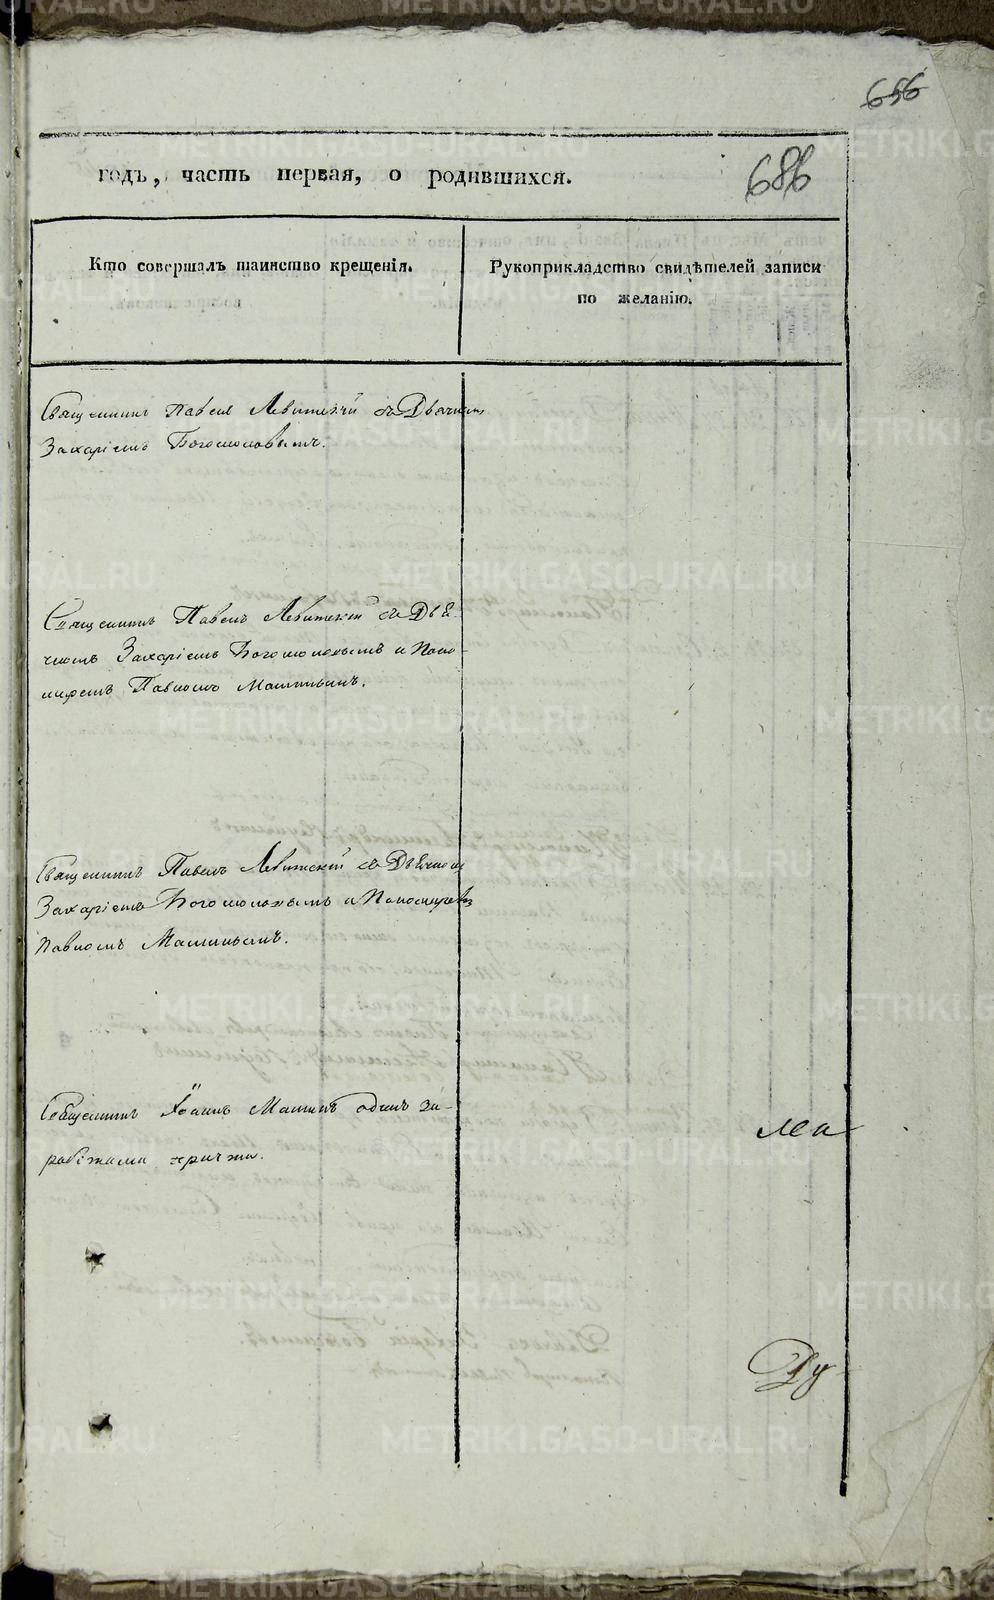 656
686
годъ, часть первая, о родившихся.
Кто совершалъ таинство крещенія.
Рукоприкладство свидѣтелей записи
по желанію.
Священникъ Павелъ Левитскій съ Дьячкомъ
Захаріемъ Богомоловымъ.
Священникъ Павелъ Левитскій съ Дья
чкомъ Захаріемъ Богомоловымъ и Поно-
маремъ Павломъ Маминымъ.
Священникъ Павелъ Левитскій съ Дьячкомъ
Захаріемъ Богомоловымъ и Пономаремъ
Павломъ Маминымъ.
Священникъ Іоаннъ Маминъ одинъ за
ма
Ду
METRIKI.GASO-URAL.RU